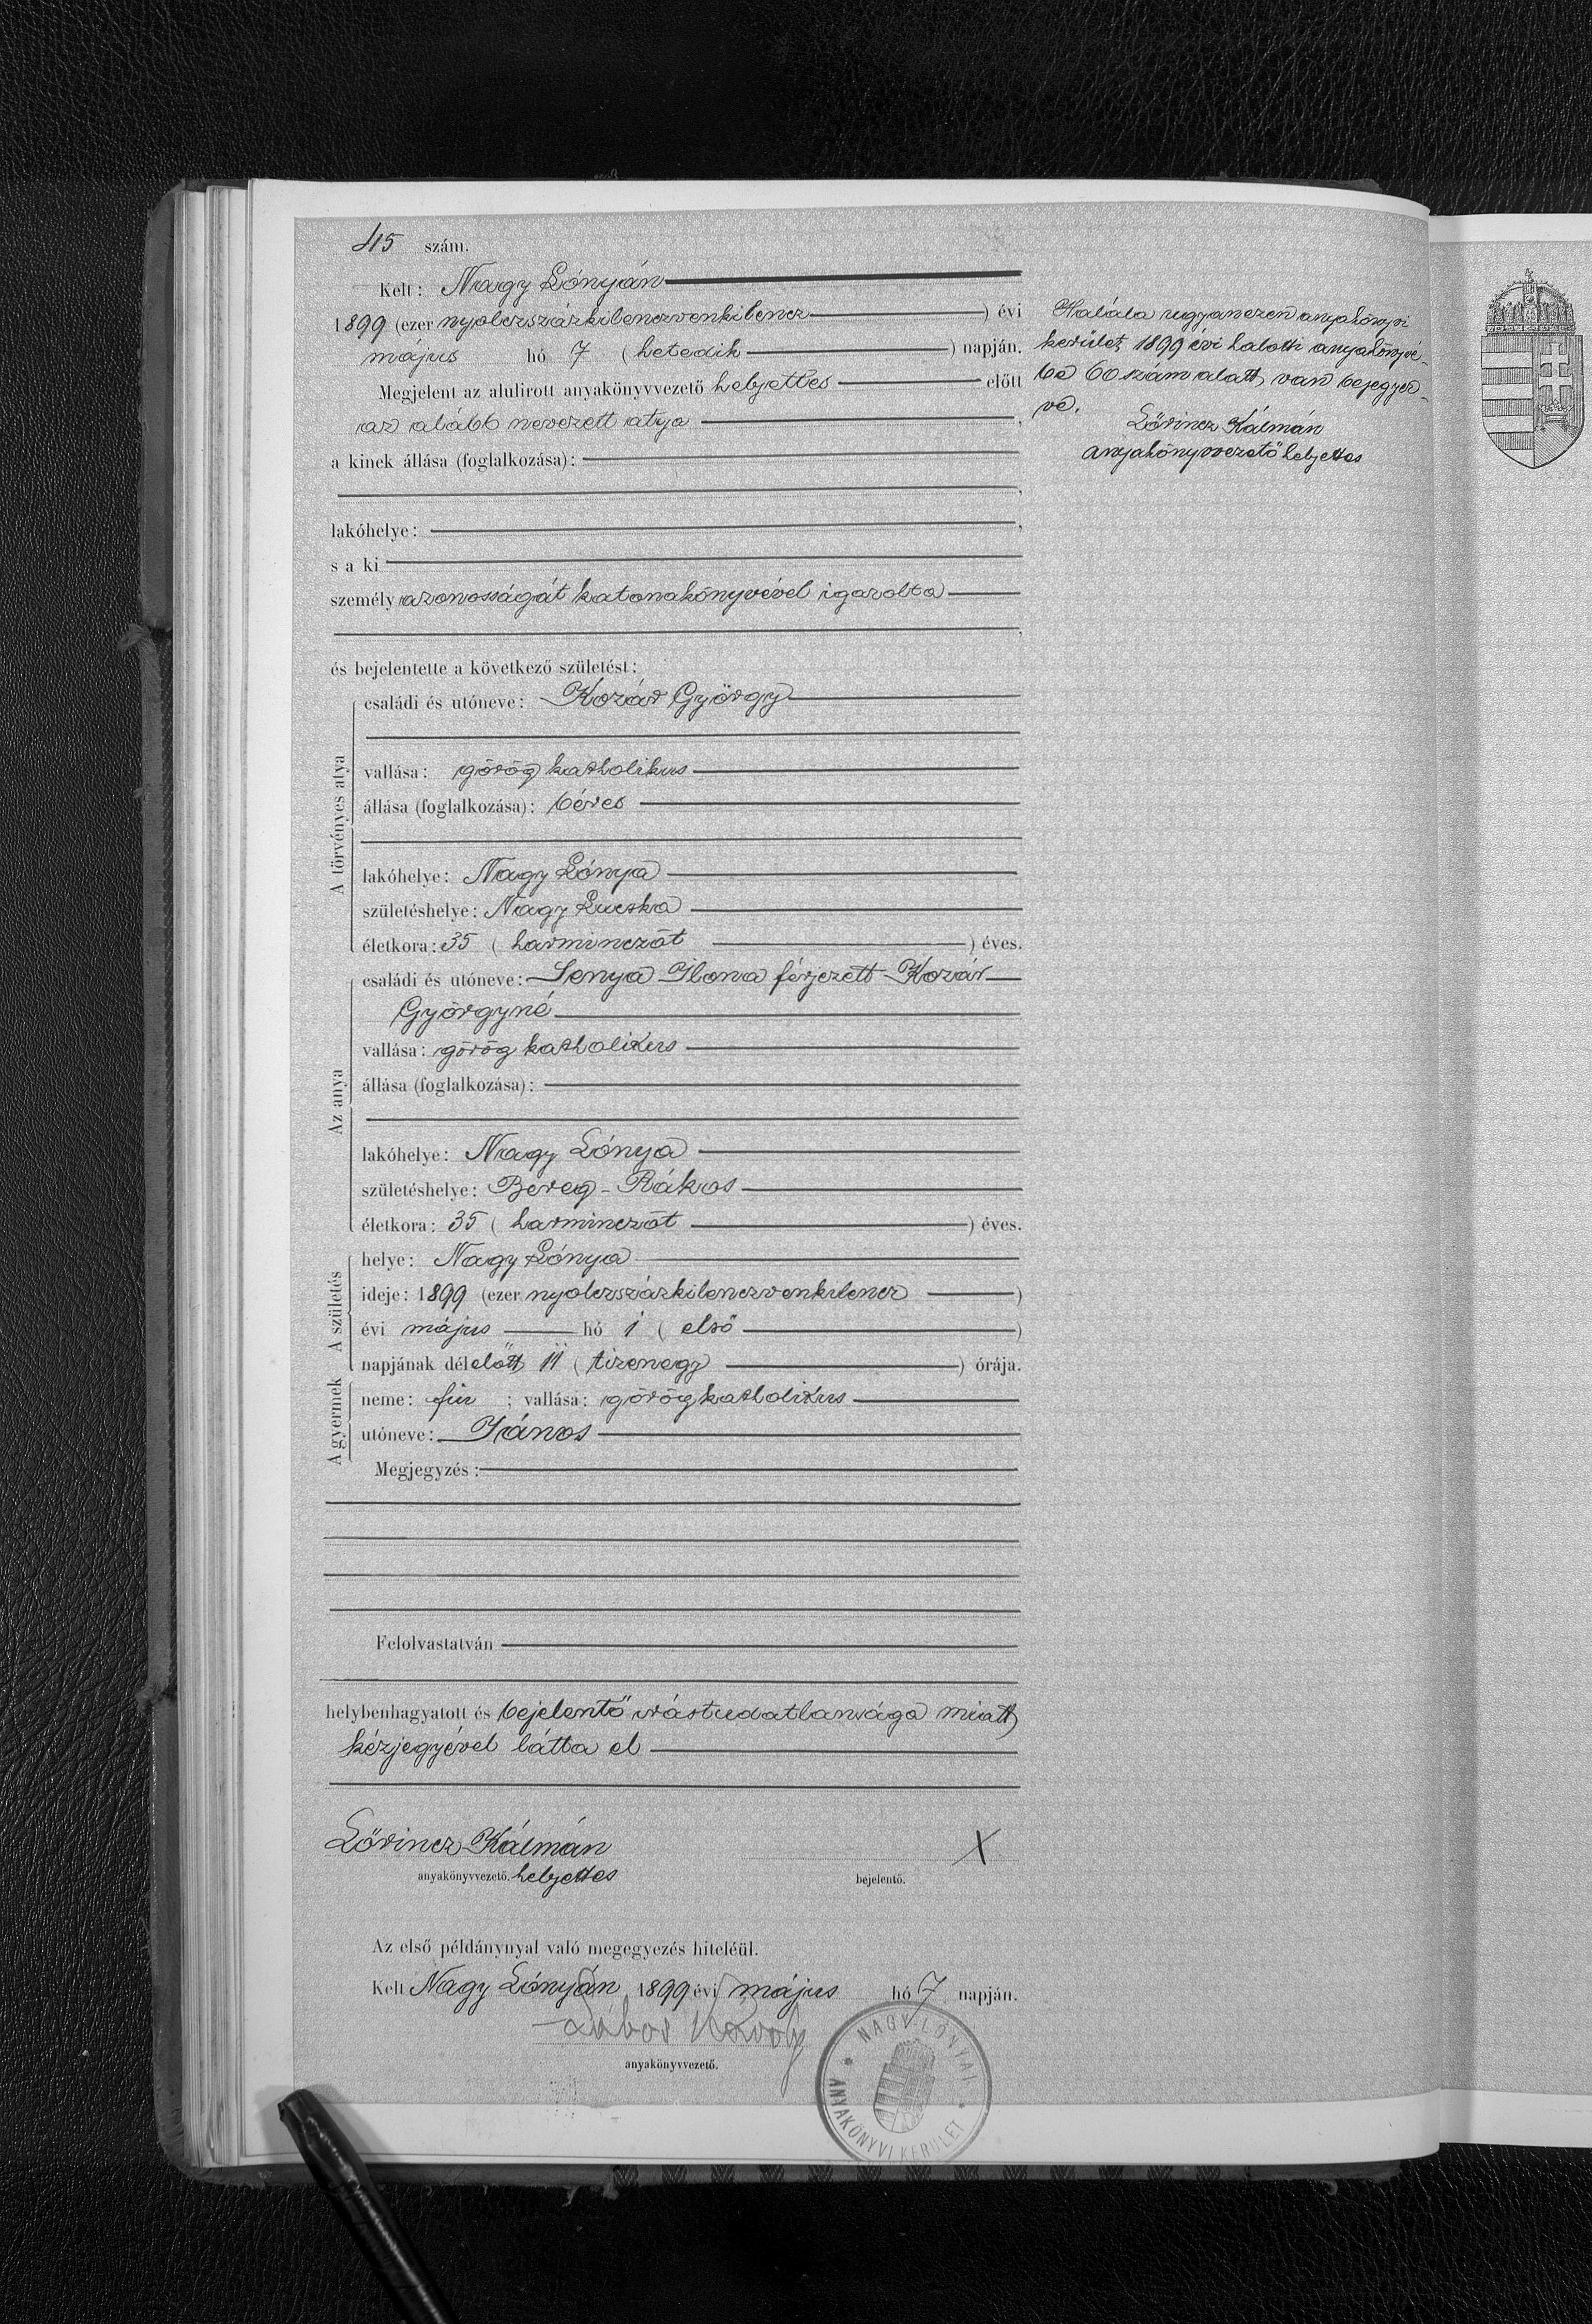 45 szám.
Kelt: Nagy Lónyán
1899 (ezer nyolczszázkilenczvenkilencz) évi
május hó 7 (hetedik) napján.
Megjelent az alulirott anyakönyvvezető helyettes előtt
az alább nevezett atya,
a kinek állása (foglalkozása):
,
lakóhelye: ,
s a ki
személyazonosságát katonakönyvével igazolta
,
és bejelentette a következő születést:
A törvényes atya
családi és utóneve: Kozár György
vallása: görög katholikus
állása (foglalkozása): béres
lakóhelye: Nagy Lónya
születéshelye: Nagy Lucska
életkora: 35 (harminczöt) éves.
Az anya
családi és utóneve: Senya Ilona férjezett Kozár
Györgyné
vallása: görög katholikus
állása (foglalkozása):
lakóhelye: Nagy Lónya
születéshelye: Bereg-Rákos
életkora: 35 (harminczöt) éves.
A születés
helye: Nagy Lónya
ideje: 1899 (ezer nyolczszázkilenczvenkilencz)
évi május hó 1 (első)
napjának délelőtt 11 (tizenegy) órája.
A gyermek
neme: fiu; vallása: görög katholikus
utóneve: János
Megjegyzés:
Felolvastatván
helybenhagyatott és bejelentő irástudatlansága miatt
kézjegyével látta el
Lőrincz Kálmán X
anyakönyvvezető. helyettes bejelentő.
Az első példánynyal való megegyezés hiteléül.
Kelt Nagy Lónyán, 1899 évi május hó 7 napján.
Károly
anyakönyvvezető.
NAGY-LÓNYAI
ANYAKÖNYVI KERÜLET
Halála ugyanezen anyakönyvi
kerület 1899 évi halotti anyakönyvé-
be 60 szám alatt van bejegyez-
ve.
Lőrincz Kálmán
anyakönyvvezető helyettes